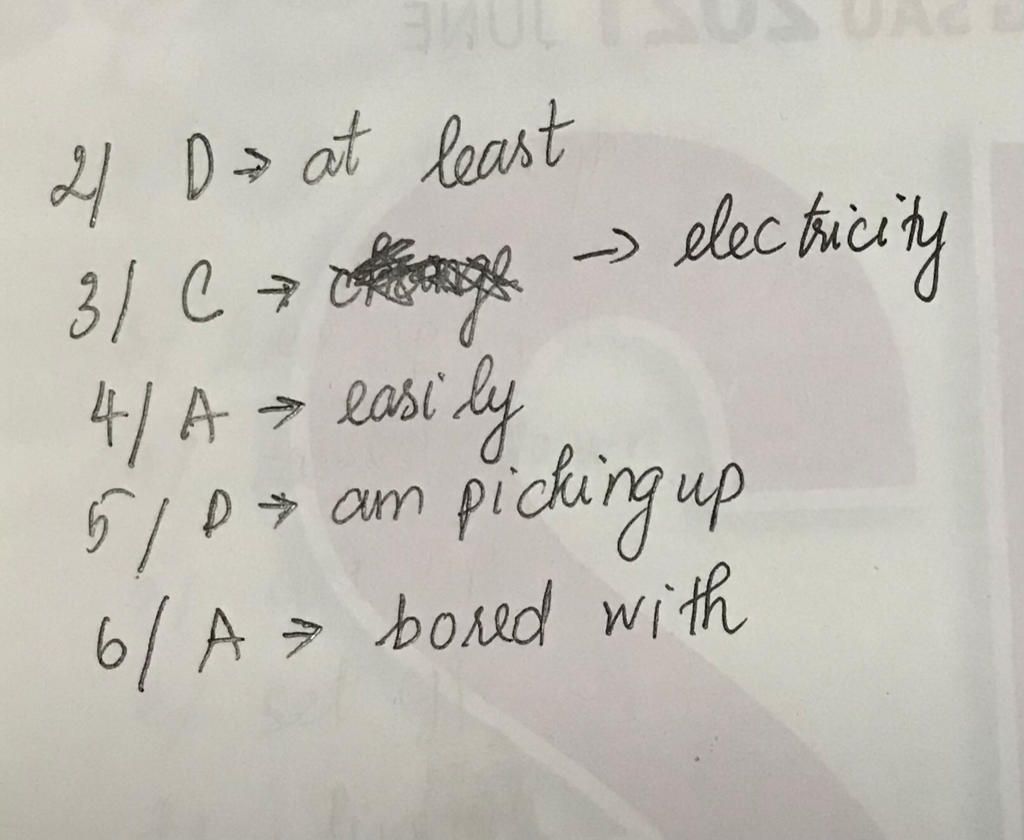 2/ D → at least
3/ C → → electricity
4/ A → easily
5/ D → am picking up
6/ A → bored with